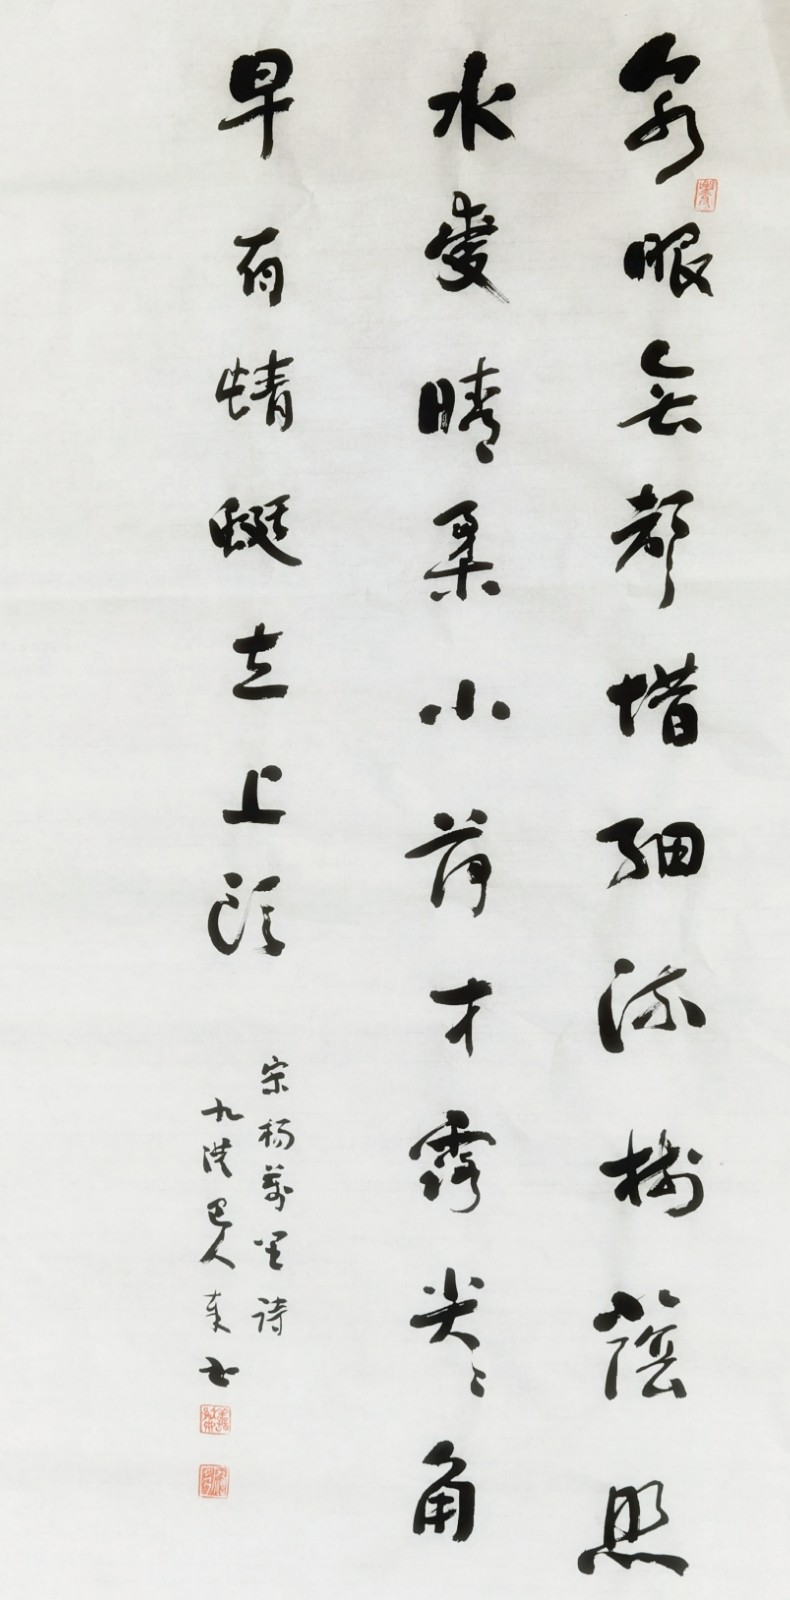 泉眼無聲惜細流樹蔭照
水愛晴柔小荷才露尖々角
早有蜻蜓立上頭
宋楊萬里詩
九 巴人 书